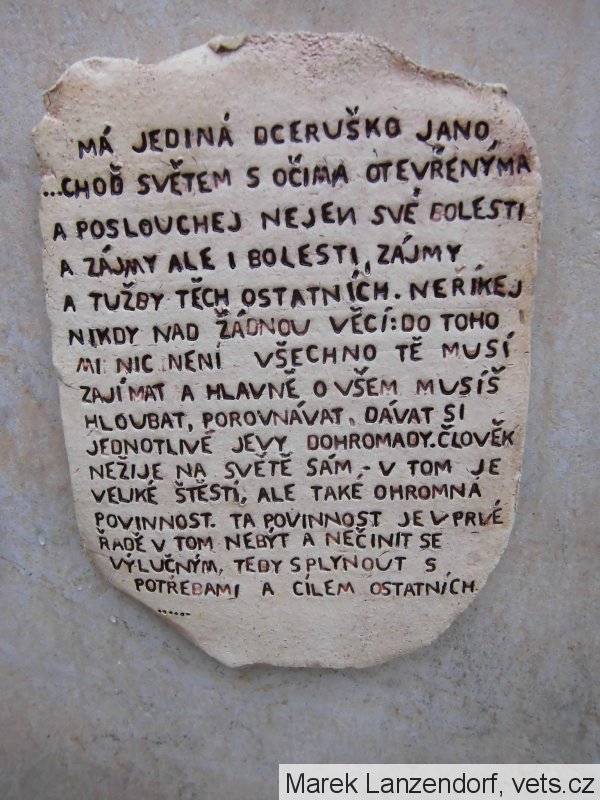 MÁ JEDINÁ DCERUŠKO JANO,
...CHOĎ SVĚTEM S OČIMA OTEVŘENÝMA
A POSLOUCHEJ NEJEN SVÉ BOLESTI
A ZÁJMY ALE I BOLESTI, ZÁJMY
A TUŽBY TĚCH OSTATNÍCH. NEŘÍKEJ
NIKDY NAD ŽÁDNOU VĚCÍ: DO TOHO
MI NIC NENÍ VŠECHNO TĚ MUSÍ
ZAJÍMAT A HLAVNĚ O VŠEM MUSÍŠ
HLOUBAT, POROVNÁVAT, DÁVAT SI
JEDNOTLIVÉ JEVY DOHROMADY. ČLOVĚK
NEŽIJE NA SVĚTĚ SÁM - V TOM JE
VELIKÉ ŠTĚSTÍ, ALE TAKÉ OHROMNÁ
POVINNOST. TA POVINNOST JE V PRVÉ
ŘADĚ V TOM NEBÝT A NEČINIT SE
VÝLUČNÝM, TEDY SPLYNOUT S
POTŘEBAMI A CÍLEM OSTATNÍCH
......
Marek Lanzendorf, vets.cz